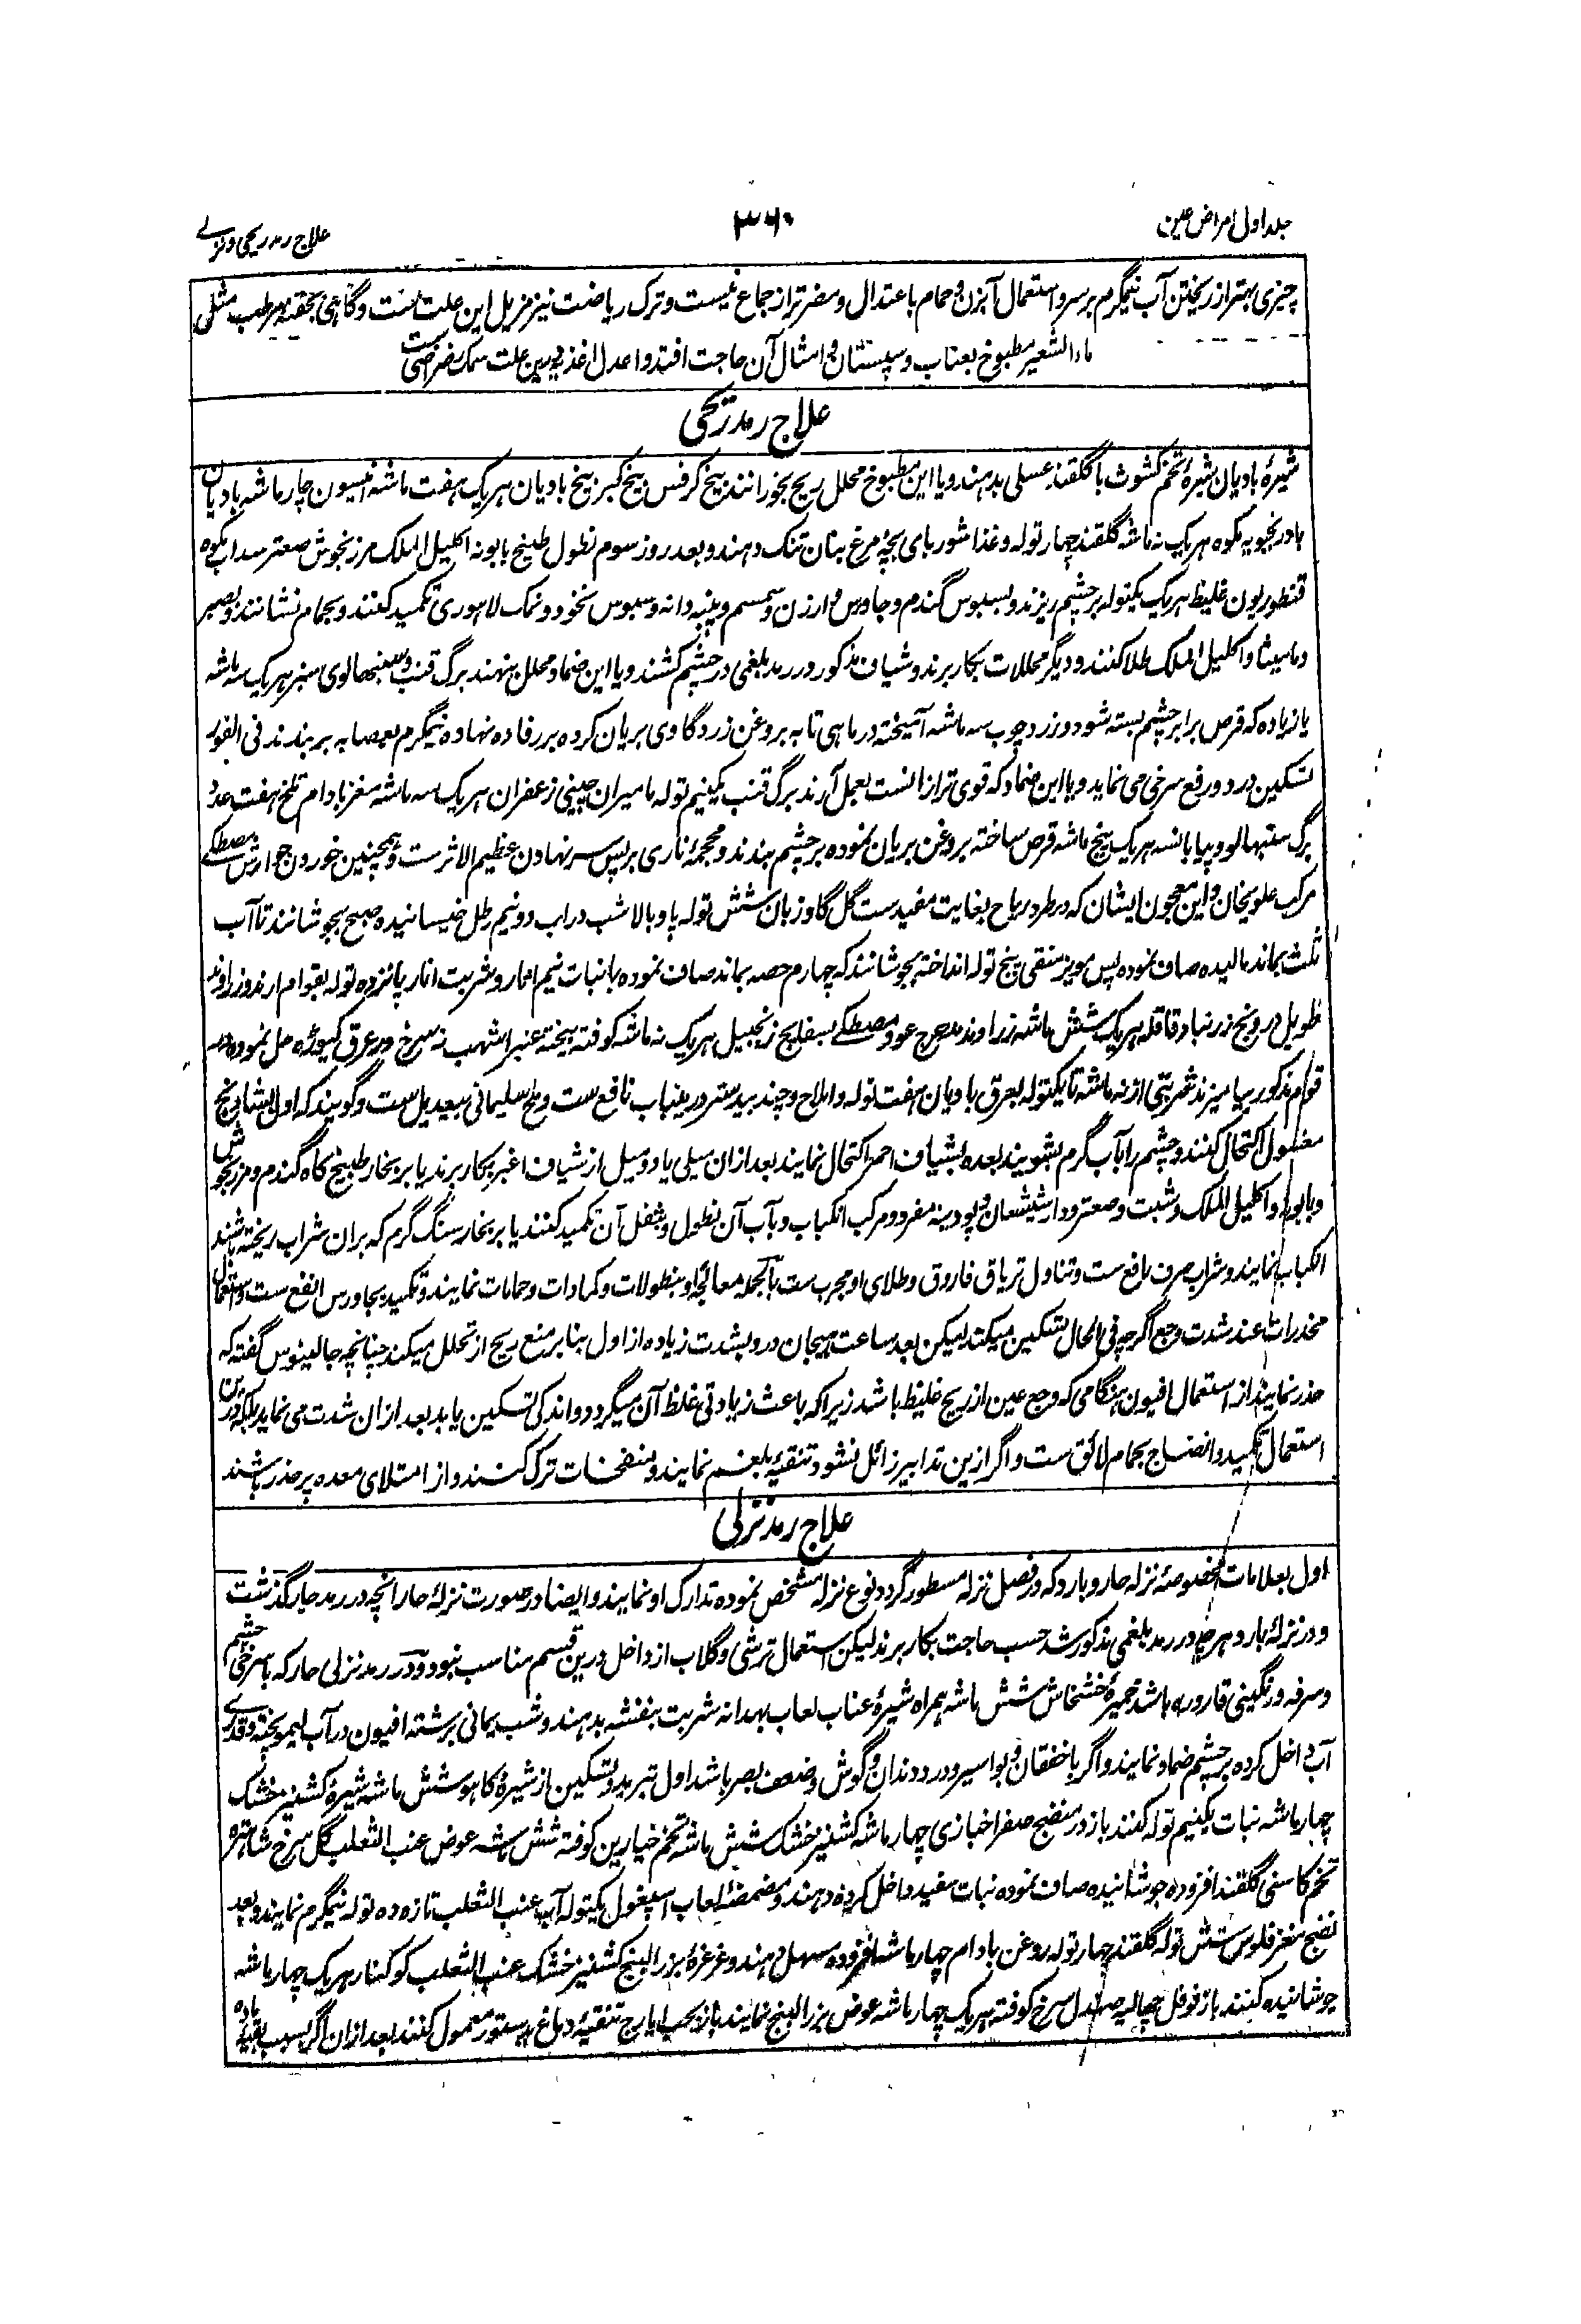 جلد اول امراض عین
۳۶۰
علاج رمد ریحی و نزلے
چیزی بهتر از ریختن آب نیمگرم بر سر و استعمال آبزن و حمام باعتدال و مضر تر از جماع نیست و ترک ریاضت نیز مزیل این علت ست و گاهی بحقنه مرطب مثلی
ماء الشعیر مطبوخ بعناب و سپستان و امثال آن حاجت افتد و اعدل اغذیه درین علت سمک رضراضی ست
علاج رمد ریحی
شیرهٔ بادیان شیرهٔ تخم کشوث با گلقند عسلی بدهند و یا این مطبوخ محلل ریح بخورانند بیخ کرفس بیخ کبر بیخ بادیان هر یک هفت ماشه انیسون چار ماشه بادیان
بادرنجبویه مکوه هر یک نه ماشه گلقند چهار توله و غذا شوربای بچهٔ مرغ بنان تنک دهند و بعد روز سوم نطول طبیخ بابونه اکلیل الملک مرزنجوش صعتر سداب مکوه
قنطوریون غلیظ هر یک یکتوله بر چشم ریزند و بسبوس گندم و جاورس و ارزن و سمسم و پنبه دانه و سبوس نخود و نمک لاهوری تکمید کنند و بحمام نشانند و بصبر
و مامیثا و اکلیل الملک طلا کنند و دیگر محللات بکار برند و شیاف مذکور در رمد بلغمی در چشم کشند و یا این ضماد محلل بنهند برگ قنب و سنبهالوی سبز هر یک سه ماشه
یا زیاده که قرص برابر چشم بسته شود و زرد چوب سه ماشه آمیخته در ماهی تابه بروغن زرد گاوی بریان کرده بر رفاده نهاده نیمگرم بعصابه بر بندند فی الفور
تسکین درد و رفع سرخی می نماید و یا این ضماد که قوی تر از انست بعمل آرند برگ قنب یکنیم توله مامیران چینی زعفران هر یک سه ماشه مغز بادام تلخ هفت عدد
برگ سنبهالو و پیا بانسه هر یک پنج ماشه قرص ساخته بروغن بریان نموده بر چشم بندند و محجمهٔ ناری بر پس سر نهادن عظیم الاثر ست و همچنین خوردن جوارش مصطکے
مرکب علویخان و این معجون ایشان که در طرد ریاح بغایت مفید ست گل گاوزبان شش توله پاو بالا شب در آب دو نیم رطل خیسانیده صبح بجوشانند تا آب
ثلث بماند مالیده صاف نموده پس مویز منقی پنج توله انداخته بجوشانند که چهارم حصه بماند صاف نموده با نبات نیم آثار و شربت انار پانزده توله بقوام آرند و زراوند
طویل درونج زرنباد قاقله هر یک شش ماشه زراوند مدحرج عود مصطکے بسفایج زنجبیل هر یک نه ماشه کوفته بیخته عنبر اشهب نه سرخ در عرق کیوڑه حل نموده در
قوام مذکور بیامیزند شربتی از نه ماشه تا یکتوله بعرق بادیان هفت توله و املاح و جند بیدستر درینباب نافع ست و ملح سلیمانی بیعدیل ست و گویند که اول بشادنج
مغسول اکتحال کنند و چشم را بآب گرم بشویند بعده بشیاف احمر اکتحال نمایند بعد ازان میلی یا دو میل از شیاف اغبر بکار برند یا بر بخار طبیخ کاه گندم و مرزنجوش
و بابونه و اکلیل الملک و شبت و صعتر و دارشیشعان و پودینه مفرد و مرکب انکباب و بآب آن نطول و بثفل آن تکمید کنند یا بر بخار سنگ گرم که بران شراب ریخته باشند
انکباب نمایند و شراب صرف نافع ست و تناول تریاق فاروق و طلای او مجرب ست بالجمله معالجهٔ او بنطولات و کمادات و حمامات نمایند و تکمید بجاورس انفع ست و استعمال
مخدرات عند شدت وجع اگرچه فی الحال تسکین میکند لیکن بعد ساعت هیجان درد بشدت زیاده از اول بنابر منع ریح از تحلل میکند چنانچه جالینوس گفته که
حذر نمایند از استعمال افیون هنگامی که وجع عین از ریح غلیظ باشد زیرا که باعث زیادتی غلظ آن میگردد و اندکی تسکین یابد بعد ازان شدت می نماید بلکه درین
استعمال تکمید و انضاج بحمام لائق ست و اگر ازین تدابیر زائل نشود تنقیهٔ بلغم نمایند و منفخات ترک کنند و از امتلای معده پر حذر باشند
علاج رمد نزلی
اول بعلامات مخصوصهٔ نزله حار و بارد که در فصل نزله مسطور گردد نوع نزله مشخص نموده تدارک او نمایند و ایضا در صورت نزلهٔ حار انچه در رمد حار گذشت
و در نزلهٔ بارد هرچه در رمد بلغمی مذکور شد حسب حاجت بکار برند لیکن استعمال ترشی و گلاب از داخل درین قسم مناسب نبود و در رمد نزلی حار که با سرخی چشم
و سرفه و رنگینی قاروره باشد خمیرهٔ خشخاش شش ماشه همراه شیرهٔ عناب لعاب بهدانه شربت بنفشه بدهند و شب یمانی برشته افیون در آب لیمو پخته و قدرے
آب داخل کرده بر چشم ضماد نمایند و اگر با خفقان و بواسیر و درد دندان و گوش و ضعف بصر باشد اول تبرید و تسکین از شیرهٔ کاهو شش ماشه شیرهٔ کشنیز خشک
چهار ماشه نبات یکنیم توله کنند باز در منضج صفرا خبازی چهار ماشه کشنیز خشک شش ماشه تخم خیارین کوفته شش ماشه عوض عنب الثعلب گل سرخ شاهتره
تخم کاسنی گلقند افزوده جوشانیده صاف نموده نبات سفید داخل کرده دهند و مضمضهٔ لعاب اسپغول یکتوله آب عنب الثعلب تازه ده توله نیمگرم نمایند و بعد
نضج مغز فلوس شش توله گلقند چهار توله روغن بادام چهار ماشه افزوده مسهل دهند و غرغرهٔ بزر البنج کشنیز خشک عنب الثعلب کوکنار هر یک چهار ماشه
جوشانیده کنند باز فوفل چهالیه صندل سرخ کوفته هر یک چهار ماشه عوض بزر البنج نمایند باز بحب ایارج تنقیهٔ دماغ بدستور معمول کنند بعد ازان اگر بسبب بقیهٔ ماده